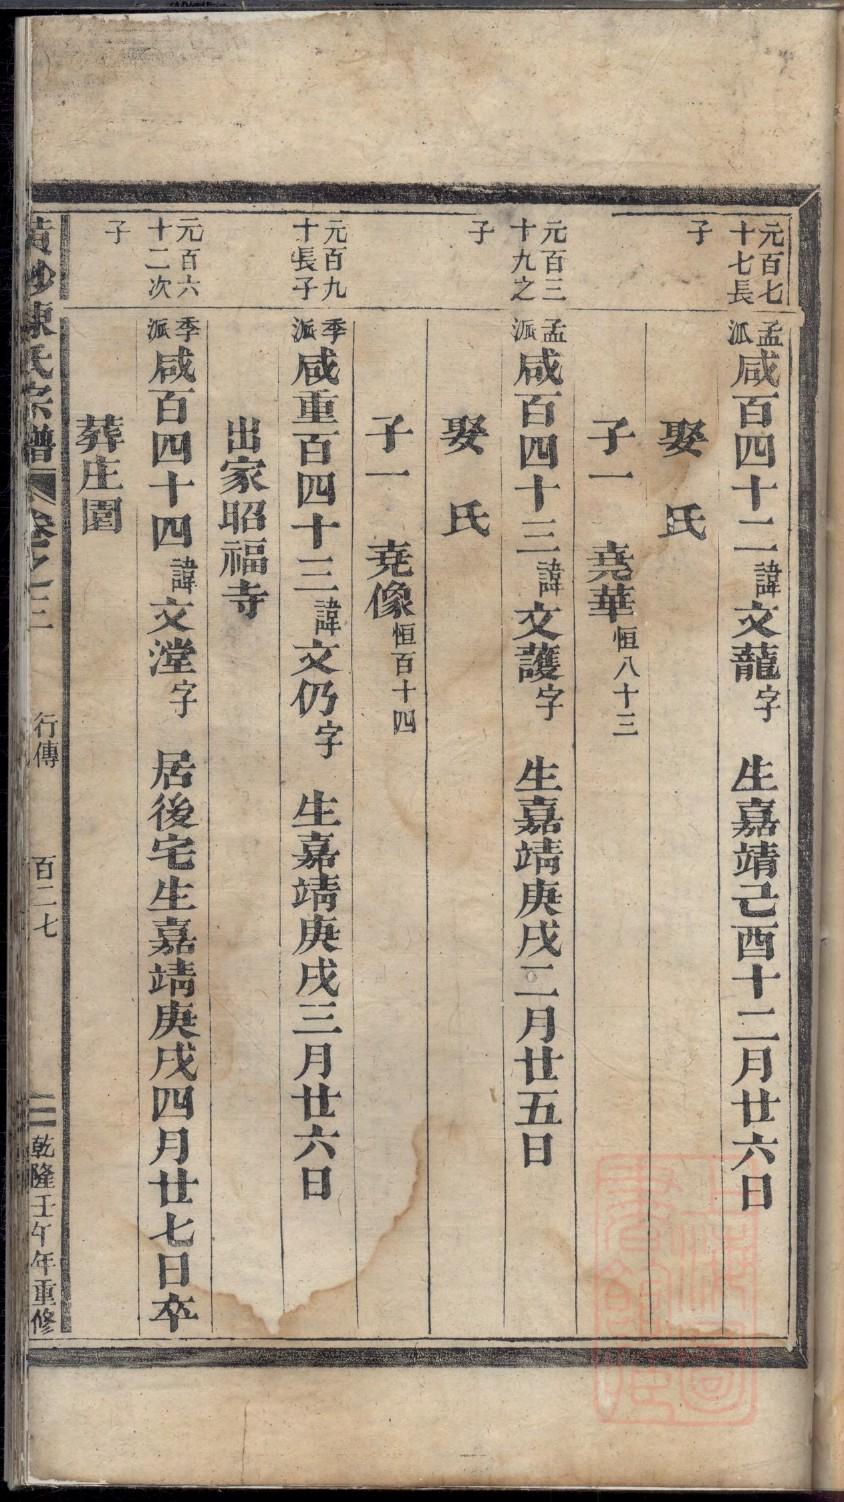 元百七十七長子
孟派咸百四十二諱文蘢字　生嘉靖己酉十二月廿六日
娶　氏
子一　堯華恒八十三
元百三十九之子
孟派咸百四十三諱文護字　生嘉靖庚戌二月廿五日
娶　氏
子一　堯像恒百十四
元百九十長子
季派咸重百四十三諱文仍字　生嘉靖庚戌三月廿六日
出家昭福寺
元百六十二次子
季派咸百四十四諱文漟字　居後宅生嘉靖庚戌四月廿七日卒
葬庄園
陳氏宗譜　卷之三　行傳　百二七　乾隆壬午年重修
上海圖書館藏